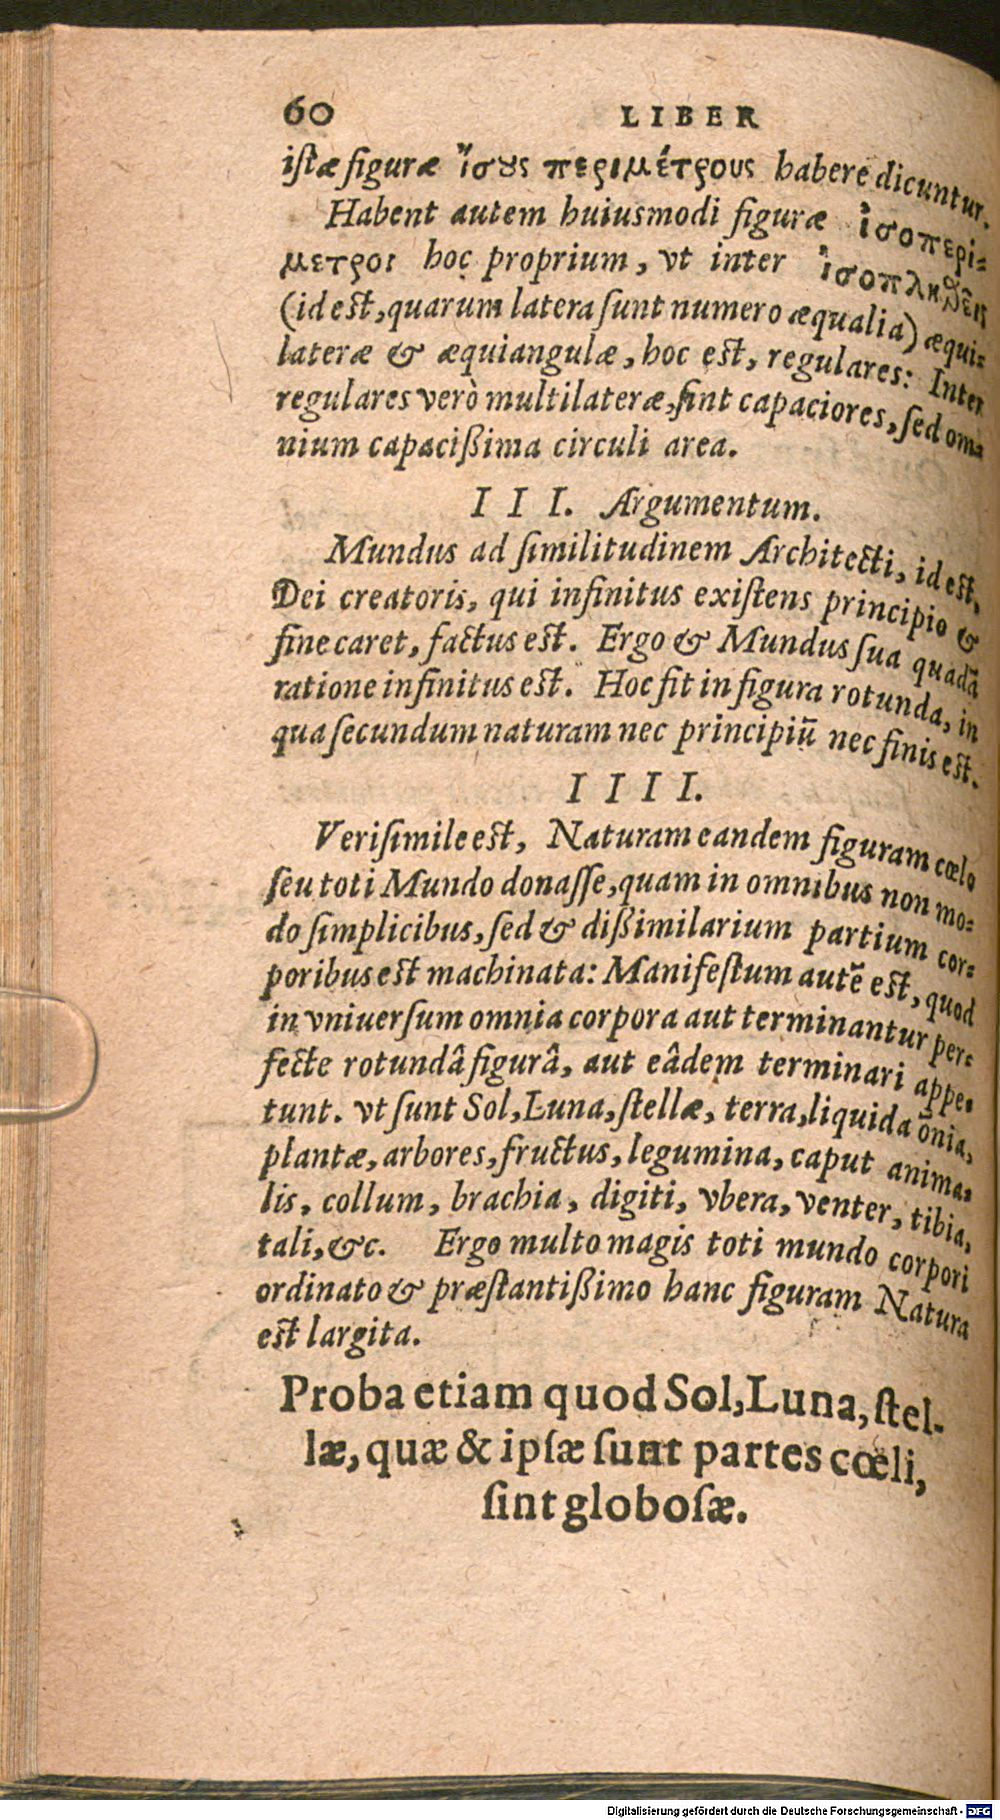 60 LIBER
istæ figuræ ἴσους περιμέτρους habere dicuntur.
Habent autem huiusmodi figuræ ἰσοπερί-
μετροι hoc proprium, vt inter ἰσοπληθεῖς
(id est, quarum latera sunt numero æqualia) æqui-
lateræ & æquiangulæ, hoc est, regulares: Inter
regulares verò multilateræ, sint capaciores, sed om-
nium capacißima circuli area.
III. Argumentum.
Mundus ad similitudinem Architecti, id est,
Dei creatoris, qui infinitus existens principio &
fine caret, factus est. Ergo & Mundus sua quadā
ratione infinitus est. Hoc fit in figura rotunda, in
qua secundum naturam nec principiū nec finis est.
IIII.
Verisimile est, Naturam eandem figuram cœlo
seu toti Mundo donasse, quam in omnibus non mo-
do simplicibus, sed & dißimilarium partium cor-
poribus est machinata: Manifestum autē est, quod
in vniuersum omnia corpora aut terminantur per-
fecte rotundâ figurâ, aut eâdem terminari appe-
tunt. vt sunt Sol, Luna, stellæ, terra, liquida ōnia,
plantæ, arbores, fructus, legumina, caput anima-
lis, collum, brachia, digiti, vbera, venter, tibia,
tali, &c. Ergo multo magis toti mundo corpori
ordinato & præstantißimo hanc figuram Natura
est largita.
Proba etiam quod Sol, Luna, stel-
læ, quæ & ipsæ sunt partes cœli,
sint globosæ.
Digitalisierung gefördert durch die Deutsche Forschungsgemeinschaft - DFG